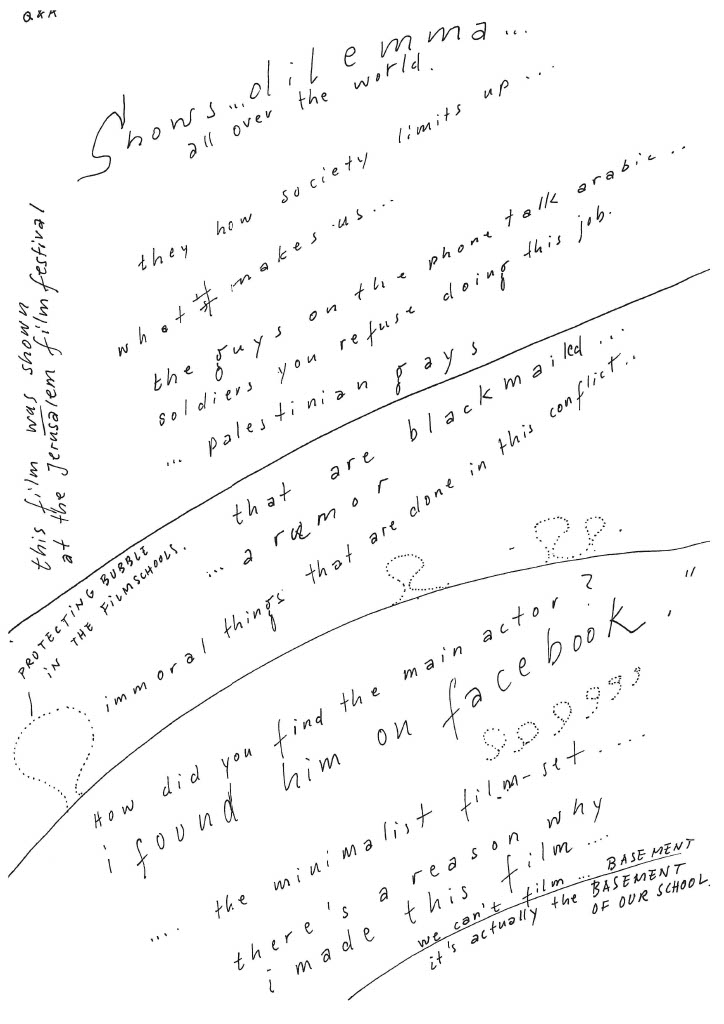 Q & A
Shows...dilemma...
all over the world.
they how society limits up...
what makes us...
the guys on the phone talk arabic..
soldiers you refuse doing this job.
... palestinian gays
this film was shown
at the Jerusalem filmfestival
that are blackmailed...
... a rumor
immoral things that are done in this conflict..
PROTECTING BUBBLE
IN THE FILMSCHOOLS.
How did you find the main actor?
i found him on facebook."
.... the minimalist film-set....
there's a reason why
i made this film....
we can't film ... BASEMENT
it's actually the BASEMENT
OF OUR SCHOOL.